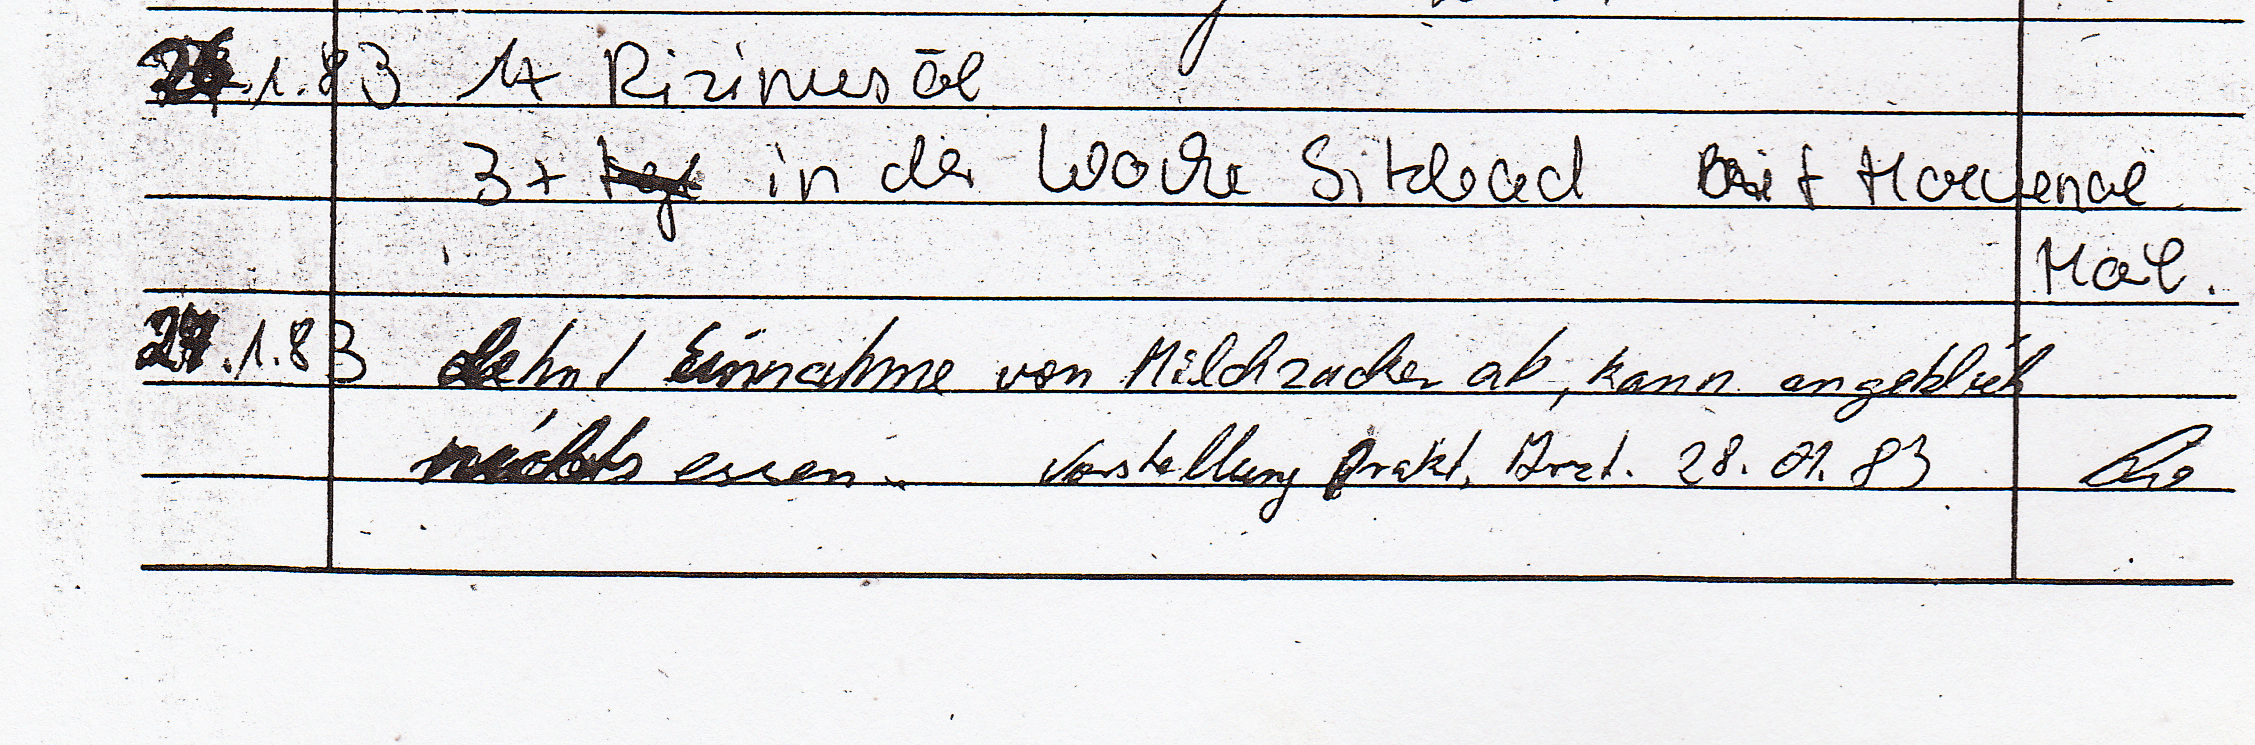 24.1.83 1x Rizinusöl
3x in der Woche Sitzbad
Hal.
27.1.83 lehnt Einnahme von Milchzucker ab, kann angeblich
nichts essen. Vorstellung prakt. Arzt. 28.01.83